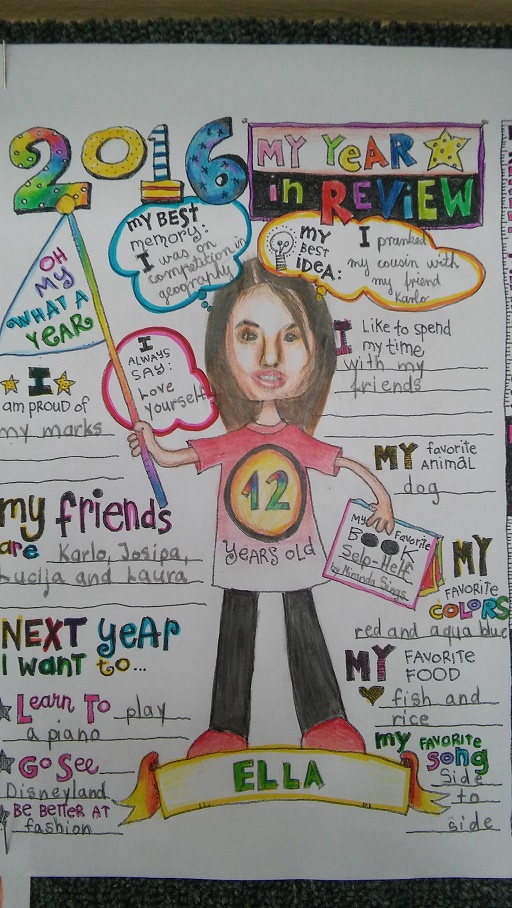 2016
MY YEAR
in REVIEW
MY BEST
memory:
I was on
competition in
geography
MY
BEST
IDEA:
I pranked
my cousin with
my friend
Karlo
OH
MY
WHAT A
YEAR
I
ALWAYS
SAY:
Love
yourself
I Like to spend
my time
with my
friends
I
am PROUD OF
my marks
MY favorite
ANIMAL
dog
12
YEARS OLD
My Favorite
BOOK
Selp-Helf
by Miranda Sings
my friends
are Karlo, Josipa,
Lucija and Laura
MY
FAVORITE
COLORS
red and aqua blue
NEXT YEAR
I want to...
Learn To play
a piano
Go See
Disneyland
BE BETTER AT
fashion
MY FAVORITE
FOOD
fish and
rice
my FAVORITE
song
Side
to
side
ELLA